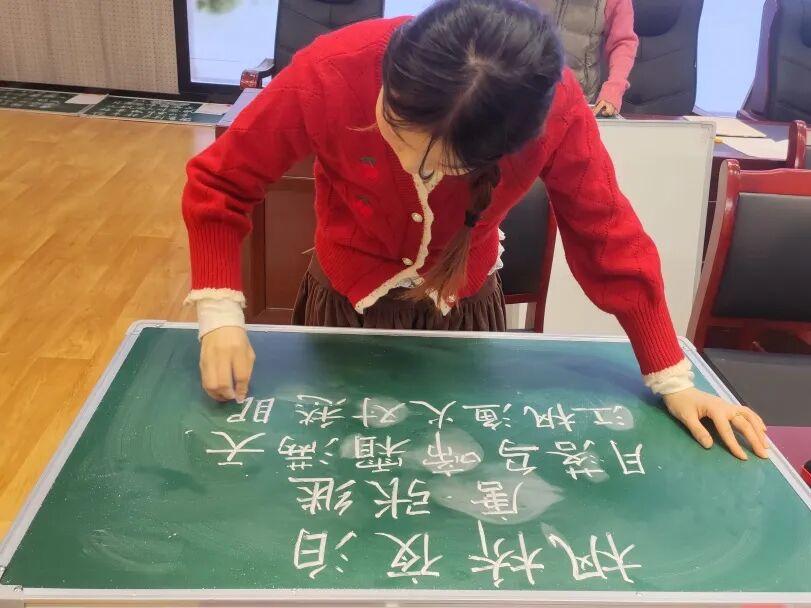 枫桥夜泊
唐 张继
月落乌啼霜满天
江枫渔火对愁